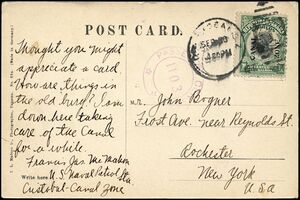 POST CARD.
Thought you might
appreciate a card
How are things in
the old burg? I am
down here taking
care of the Canal
for a while.
Francis Jas. McMahon
Write here U.S. Naval Patrol Sta.
Cristobal - Canal Zone
Mr. John Bogner
Frost Ave. near Reynolds St
Rochester
New York
U.S.A